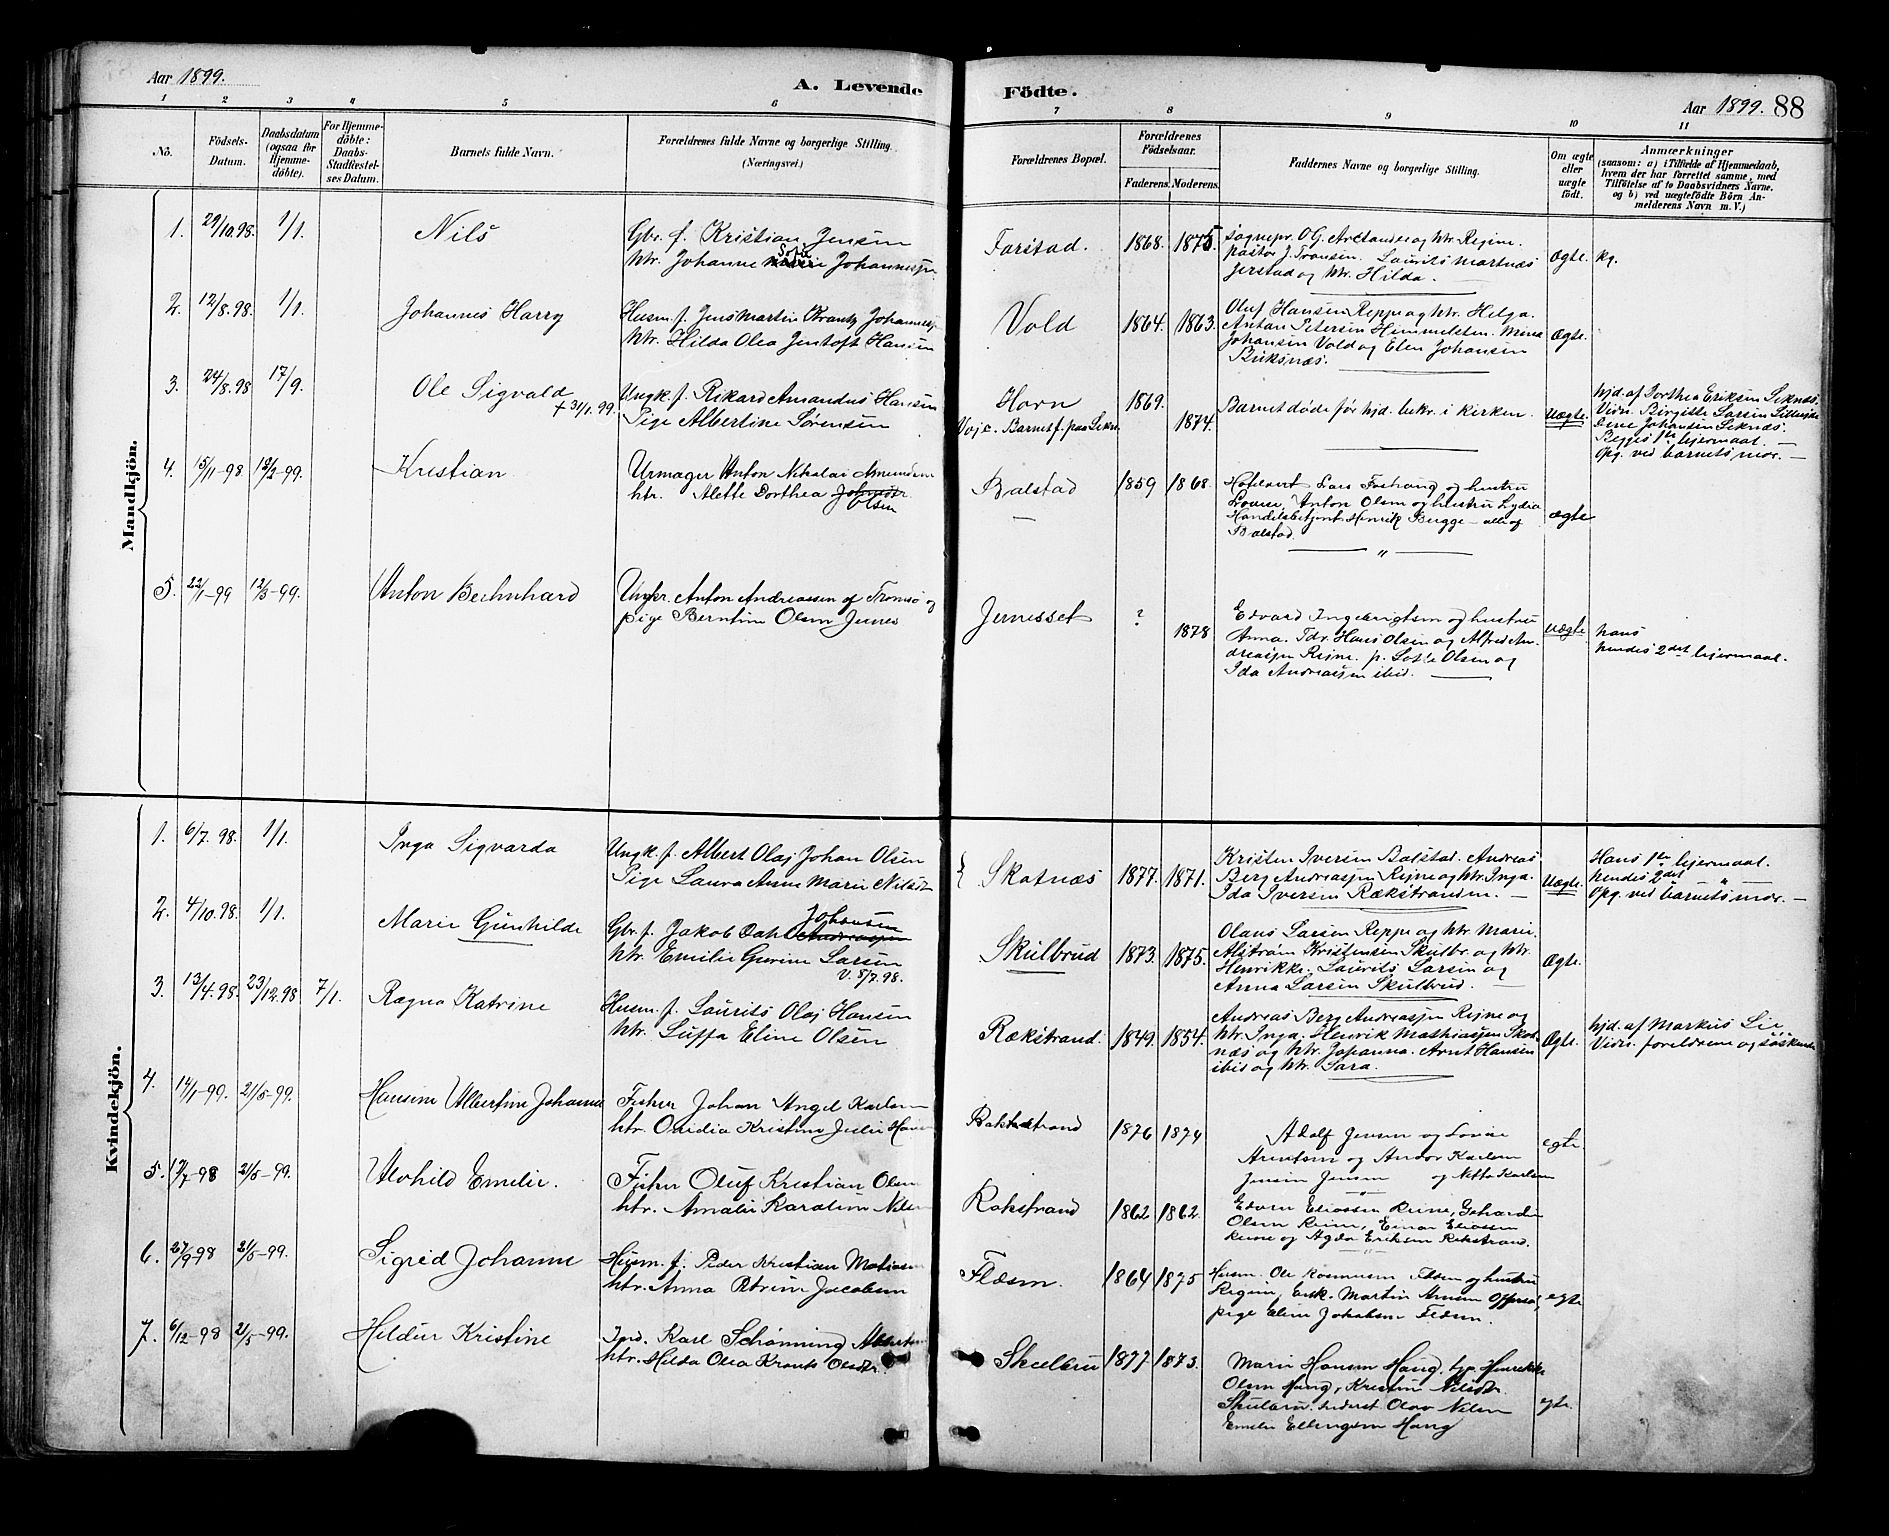 Aar 1899.
A. Levende Födte.
Aar 1899. 88
1 2 3 4 5 6 7 8 9 10 11
No.
Födsels-
Datum.
Daabsdatum
(ogsaa for
Hjemme-
döbte).
For Hjemme-
döbte:
Daabs-
Stadfæstel-
ses Datum.
Barnets fulde Navn.
Forældrenes fulde Navne og borgerlige Stilling
(Næringsvei.)
Forældrenes Bopæl.
Forældrenes
Födselsaar.
Faderens. Moderens.
Faddernes Navne og borgerlige Stilling.
Om ægte
eller
uægte
født.
Anmærkninger
(saasom: a) i Tilfælde af Hjemmedaab,
hvem der har forrettet samme, med
Tilføielse af to Daabsvidners Navne.
og b) ved uægtefödte Börn An-
melderens Navn m. V.)
Mandkjön.
1. 29/10.98. 1/1. Nils
Gbr. f. Kristian Jensen
htr. Johanne Sofie Johannesen
Farstad. 1868. 1875
htr. Regine.
Laurits Martnæs
Jerstad og htr. Hilda.
Ægte. kg.
2. 12/8.98. 1/1. Johannes Harry
Husm. f. Jens Martin Krantz Johannesen
htr. Hilda Olea Jentoft Hansen
Vold 1864. 1863.
Oluf Hansen Reppe og htr. Helga.
Anton Petersen Himmelsten. Mina
Johansen Vold og Elen Johansen
Buksnæs.
Ægte.
3. 24/8.98 17/9. Ole Sigvald
† 31/1.99.
Ungk. f. Rikard Amandus Hansen
Pige Albertine Sørensen
Horn 1869.
Barnet f. paa 1874.
Barnet døde før hjd. bekr. i kirken.
Uægte.
hjd. af Dorthea Eriksen Leknæs.
Vidn. Birgitte Larsen
Johansen Leknæs.
Begges 1ste leiermaal.
Opg. ved barnets mor.
4. 15/1-98 12/2-99. Kristian
Urmager Anton Nikolai Amundsen
htr. Alette Dorthea Johnsdtr.
Olsen
Balstad 1859 1868.
Lars Frehaug og hustru
Lovise, Anton Olsen og hustru Lydia
Handelsbetjent Henrik Bugge - alle af
Balstad.
ægte
5. 22/1-99 12/3-99. Anton Bernhard
Ungkr. Anton Andreassen af Tromsø og
pige Berntine Olsen Jernes
Jernesset ? 1878
Edvard Ingebrigtsen og hustru
Anna. Hans Olsen og Alfred An-
dreasen Reine. p. Lotte Olsen og
Ida Andreasen ibid.
uægte
hans
hendes 2det leiermaal.
Kvindekjön.
1. 6/7.98. 1/1. Inga Sigvarda
Ungk. f. Albert Olaj Johan Olsen
Pige Laura Anne Marie Nilsdtr
Skotnæs 1877. 1871.
Kristen Iversen Balstad. Andreas
Berg Andreasen Reine og htr. Inga.
Ida Iversen Rækstranden.
Uægte.
Hans 1ste leiermaal.
hendes 2det "
Opg. ved barnets mor.
2. 4/10.98. 1/1. Marie Gunhilde
Johansen
Gbr. f. Jakob Dahl Andreasen
htr. Emilie Gurine Larsen
V. 5/7.98.
Skulbrud 1873. 1875.
Olaus Larsen Reppe og htr. Marie.
Alstrøm Kristensen Skulbr. og htr.
Henrikke. Laurits Larsen og
Anna Larsen Skulbrud.
Ægte.
3. 13/4.98. 23/12.98 7/1. Ragna Katrine
Husm. f. Laurits Olaj Hansen
htr. Luffa Eline Olsen
Rækstrand. 1849. 1854.
Andreas Berg Andreasen Reine og
htr. Inga. Henrik Mathiasen Skot-
næs og htr. Johanna. Arnt Hansen
ibid og htr. Sara.
Ægte.
hjd. af Markus Lie
Vidn. foreldrene og søskende
4. 14/1-99. 21/5-99. Hansine Albertine Johanna
Fisker Johan Angel Karlsen
htr. Ovidia Kristine Julie
Rakstrand 1876 1874
Adolf Jensen og Lovise
Arntsen og Andor Karlsen
Jensen og Netta Karlsen
egte
5. 12/7-98 21/5-99. Alvhild Emelie.
Fisker Oluf Kristian Olsen
htr. Amalie Karoline Nilsen
Rakstrand 1862 1862.
Edvin Eliassen Reine, Gehard
Olsen Reine, Einar Eliassen
Reine og Agda Eriksen Rekstrand.
6. 27/9-98 21/5-99. Sigrid Johanne
Husm. f. Peder Kristian Matiasen
htr. Anna Petrine Jacobsen
Flæsm. 1864 1875
Husm. Ole Rasmussen og hustru
Regine, Enk. Martin
pige Eline Johansen
egte
7. 6/12-98 21/5-99. Hildur Kristine
Karl Schønning Albertsen
htr. Hilda Olea Krantz Olsdtr.
Skulbru 1877 1873.
Marie Hansen Haug, Henrikke
Olsen Haug, Kristine Nilsdtr
Skulbru. Olav Nilsen
Emelie Ellingsen Haug
egte.